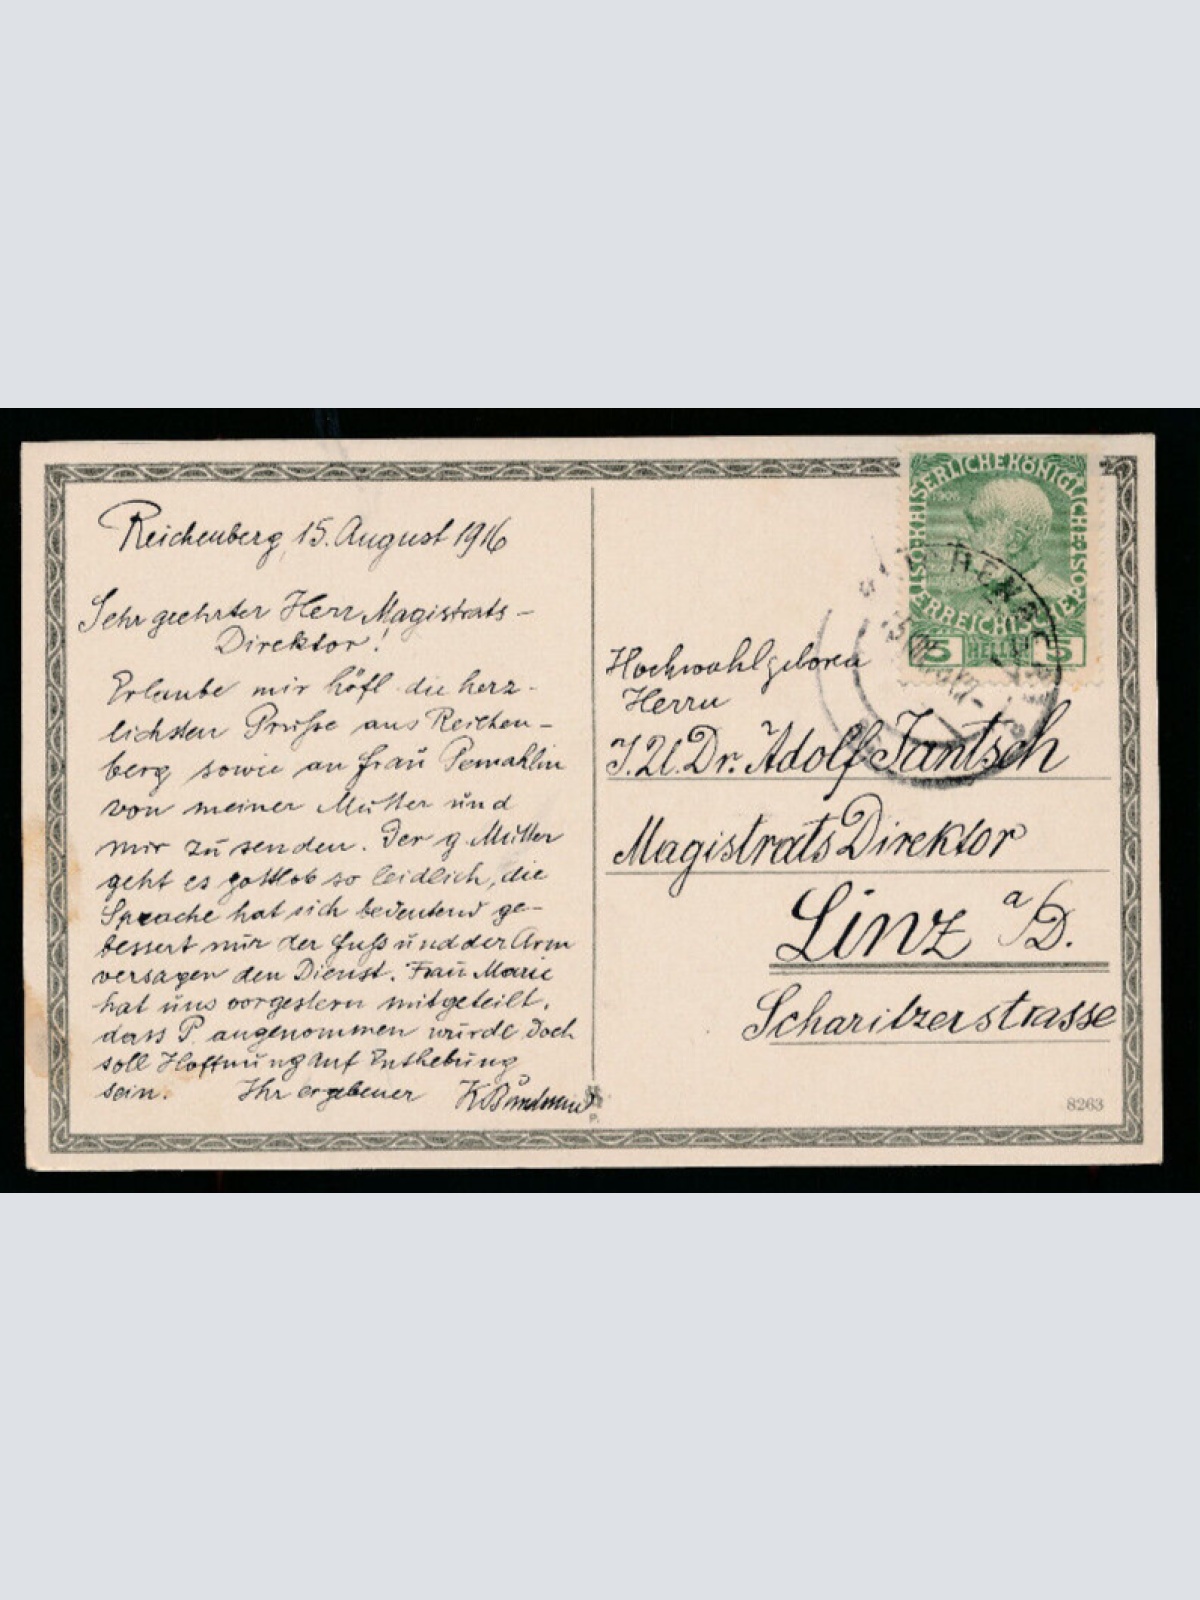 Reichenberg, 15. August 1916
Sehr geehrter Herr Magistrats-
Direktor!
Erlaube mir höfl. die herz-
lichsten Grüße aus Reichen-
berg sowie an Frau Gemahlin
von meiner Mutter und
mir zu senden. Der g. Mutter
geht es gottlob so leidlich, die
Sprache hat sich bedeutend ge-
bessert nur der Fuß und der Arm
versagen den Dienst. Frau Marie
hat uns vorgestern mitgeteilt,
dass P. angenommen wurde doch
soll Hoffnung auf Enthebung
sein. Ihr ergebener K.
ÖSTERREICHISCHE POST KAISERLICHEKÖNIGLICHE
1908
5 HELLER 5
Hochwohlgeboren
Herrn
J.U.Dr. Adolf Jantsch
Magistrats Direktor
Linz a/D.
Scharitzerstrasse
8263